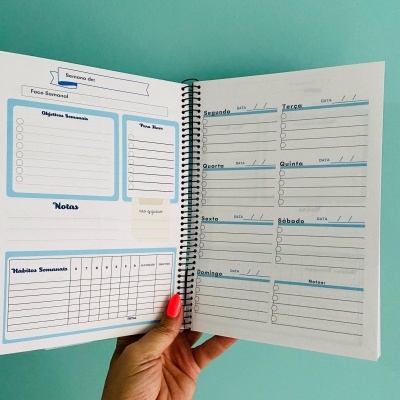 Semana de:
Foco Semanal
Objetivos Semanais
Para Fazer
Notas
não esquecer
Hábitos Semanais
Segunda DATA / /
Terça DATA / /
Quarta DATA / /
Quinta DATA / /
Sexta DATA / /
Sábado DATA / /
Domingo DATA / /
Notas: